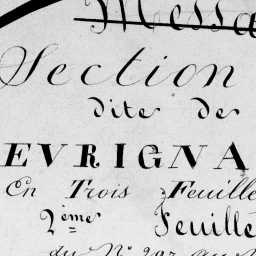 Messa
Section
dite de
EVRIGNA
En Trois Feuille
2ème Feuille
du N° 297 au N